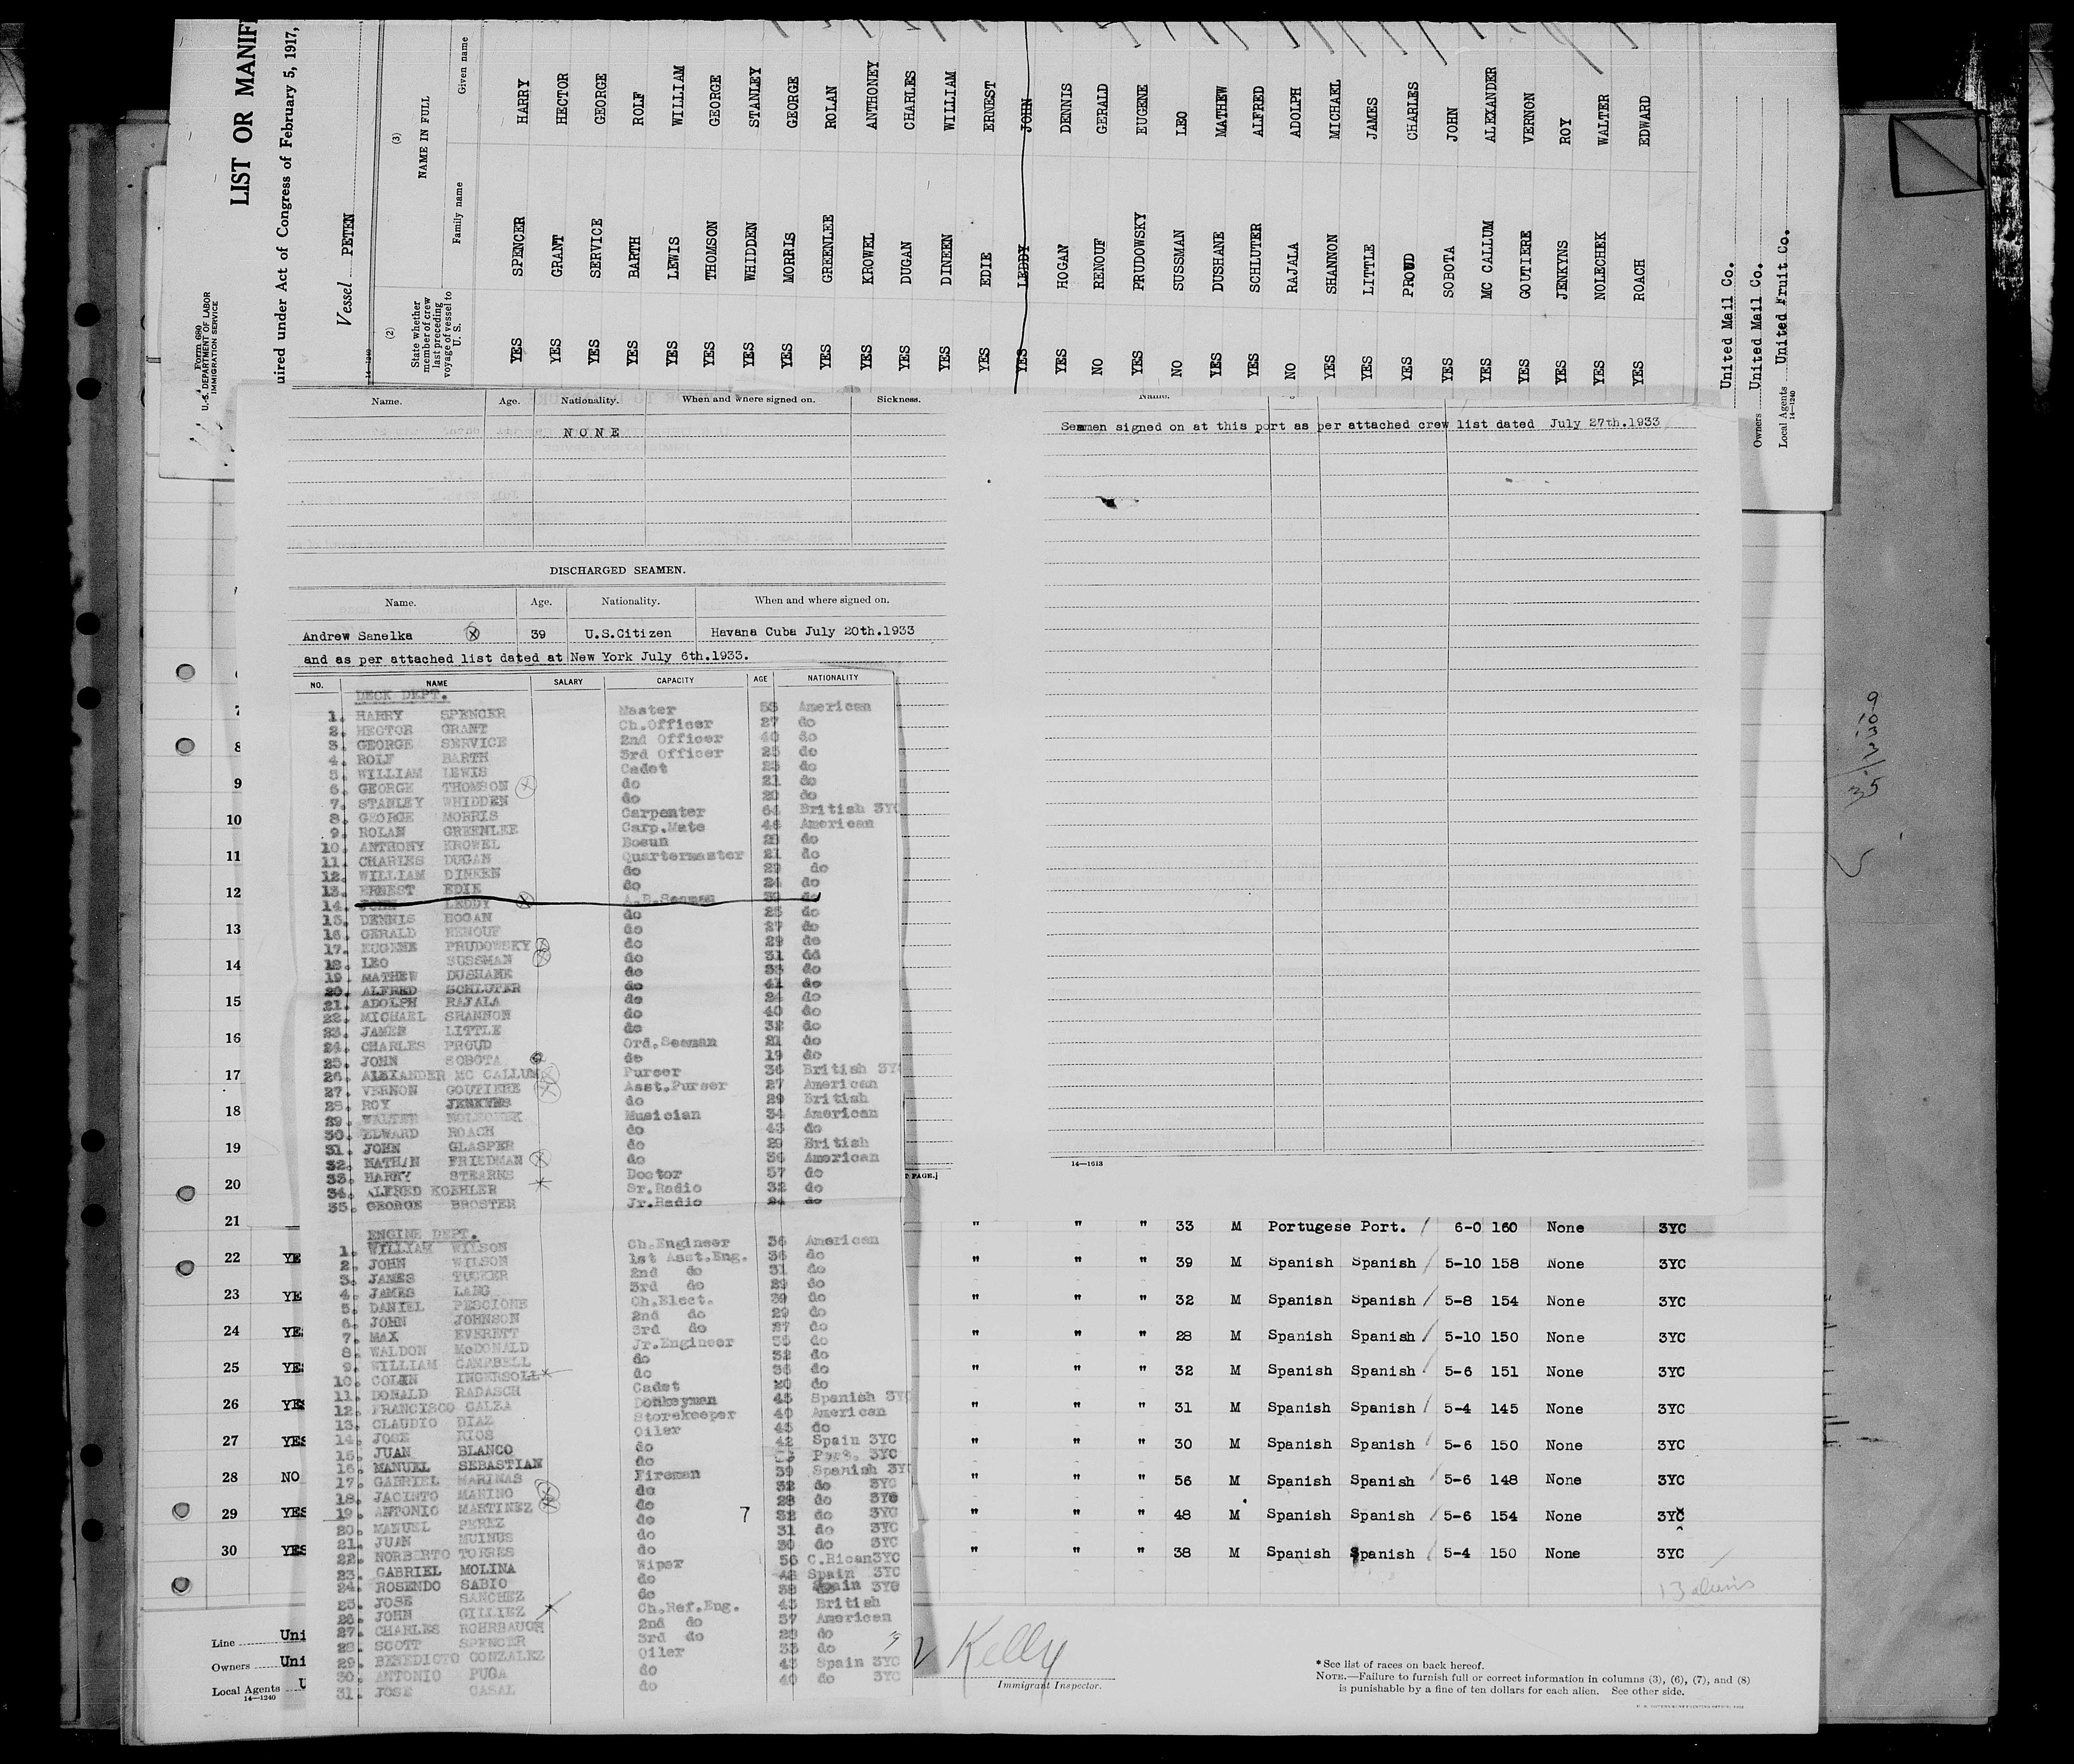 LIST OR MANIF
uired under Act of Congress of February 5, 1917,
Form 680
U.S. DEPARTMENT OF LABOR
IMMIGRATION SERVICE
Vessel PETEN
14-1240
(2) (3)
State whether member of crew last preceding voyage of vessel to U. S.
NAME IN FULL
Family name Given name
YES SPENCER HARRY
YES GRANT HECTOR
YES SERVICE GEORGE
YES BARTH ROLF
YES LEWIS WILLIAM
YES THOMSON GEORGE
YES WHIDDEN STANLEY
YES MORRIS GEORGE
YES GREENLEE ROLAN
YES KROWEL ANTHONEY
YES DUGAN CHARLES
YES DINEEN WILLIAM
YES EDIE ERNEST
YES LEDDY JOHN
YES HOGAN DENNIS
NO RENOUF GERALD
YES PRUDOWSKY EUGENE
NO SUSSMAN LEO
YES DUSHANE MATHEW
YES SCHLUTER ALFRED
NO RAJALA ADOLPH
YES SHANNON MICHAEL
YES LITTLE JAMES
YES PROUD CHARLES
YES SOBOTA JOHN
YES MC CALLUM ALEXANDER
YES GOUTIERE VERNON
YES JENKYNS ROY
YES NOLECHEK WALTER
YES ROACH EDWARD
United Mail Co.
Owners United Mail Co.
Local Agents United Fruit Co.
14-1240
Name. Age. Nationality. When and where signed on. Sickness.
NONE
DISCHARGED SEAMEN.
Name. Age. Nationality. When and where signed on.
Andrew Sanelka 39 U.S.Citizen Havana Cuba July 20th.1933
and as per attached list dated at New York July 6th.1933.
Name.
Seamen signed on at this port as per attached crew list dated July 27th.1933
14-1613
NO. NAME SALARY CAPACITY AGE NATIONALITY
DECK DEPT.
1. HARRY SPENCER Master 55 American
2. HECTOR GRANT Ch.Officer 27 do
3. GEORGE SERVICE 2nd Officer 40 do
4. ROLF BARTH 3rd Officer 25 do
5. WILLIAM LEWIS Cadet 23 do
6. GEORGE THOMSON do 21 do
7. STANLEY WHIDDEN do 20 do
8. GEORGE MORRIS Carpenter 64 British 3YC
9. ROLAN GREENLEE Carp.Mate American
10. ANTHONY KROWEL Bosun do
11. CHARLES DUGAN Quartermaster 21 do
12. WILLIAM DINEEN do 29 do
13. ERNEST EDIE do 24 do
14. JOHN LEDDY A.B.Seaman do
15. DENNIS HOGAN do 25 do
16. GERALD RENOUF do 27 do
17. EUGENE PRUDOWSKY do 29 do
18. LEO SUSSMAN do 31 dd
19 MATHEW DUSHANE do do
20. ALFRED SCHLUTER do 41 do
21. ADOLPH RAJALA do 24 do
22. MICHAEL SHANNON do 40 do
23. JAMES LITTLE do 32 do
24. CHARLES PROUD Ord.Seaman 21 do
25. JOHN SOBOTA do 19 do
26. ALEXANDER MC CALLUM Purser 36 British 3Y
27. VERNON GOUTIERE Asst.Purser 27 American
28. ROY JENKYNS do 29 British
29. WALTER NOLECHEK Musician 34 American
30. EDWARD ROACH do 43 do
31. JOHN GLASPER do 29 British
32. NATHAN FRIEDMAN do 36 American
33. HARRY STEARNS Doctor 57 do
34. ALFRED KOEHLER Sr.Radio 32 do
35. GEORGE BROSTER Jr.Radio 24 do
ENGINE DEPT.
1. WILLIAM WILSON Ch.Engineer 36 American
2. JOHN WILSON 1st Asst.Eng. 36 do
3. JAMES TUCKER 2nd do 31 do
4. JAMES LANG 3rd do 29 do
5. DANIEL PESCIONE Ch.Elect. 39 do
6. JOHN JOHNSON 2nd do 29 do
7. MAX EVERETT 3rd do 27 do
8. WALDON McDONALD Jr.Engineer do
9. WILLIAM CAMPBELL do 32 do
10. COLIN INGERSOLL do do
11. DONALD RADASCH Cadet 20 do
12. FRANCISCO GALZA Donkeyman 45 Spanish 3YC
13. CLAUDIO DIAZ Storekeeper 40 American
14. JOSE RIOS Oiler 45 do
15. JUAN BLANCO do 42 Spain 3YC
16. MANUEL SEBASTIAN do Port. 3YC
17. GABRIEL MARINAS Fireman 39 Spanish 3YC
18. JACINTO MARINO do 32 do 3YC
19. ANTONIO MARTINEZ do 28 do 3YC
20. MANUEL PEREZ do 32 do 3YC
21. JUAN MUINUS do 31 do 3YC
22. NORBERTO TORRES do 30 do 3YC
23. GABRIEL MOLINA Wiper 56 C.Rican3YC
24. ROSENDO SABIO do 48 Spain 3YC
25. JOSE SANCHEZ do 38 Spain 3YC
26. JOHN GILLIEZ Ch.Ref.Eng. 43 British
27. CHARLES ROHRBAUGH 2nd do 37 American
28. SCOTT SPENCER 3rd do do
29. BENEDICTO GONZALEZ Oiler 33 do
30. ANTONIO PUGA do 43 Spain 3YC
31. JOSE CASAL do 40 do 3YC
7
8
9
10
11
12
13
14
15
16
17
18
19
20
T PAGE.]
21 " " " 33 M Portugese Port. 6-0 160 None 3YC
22 YE " " " 39 M Spanish Spanish 5-10 158 None 3YC
23 YE " " " 32 M Spanish Spanish 5-8 154 None 3YC
24 YES " " " 28 M Spanish Spanish 5-10 150 None 3YC
25 YES " " " 32 M Spanish Spanish 5-6 151 None 3YC
26 YES " " " 31 M Spanish Spanish 5-4 145 None 3YC
27 YES " " " 30 M Spanish Spanish 5-6 150 None 3YC
28 NO " " " 56 M Spanish Spanish 5-6 148 None 3YC
29 YES 7 " " " 48 M Spanish Spanish 5-6 154 None 3YC
30 YES " " " 38 M Spanish Spanish 5-4 150 None 3YC
13 aliens
Line Uni
Owners Uni
Local Agents U
14-1240
Kelly
Immigrant Inspector.
* See list of races on back hereof.
NOTE.—Failure to furnish full or correct information in columns (3), (6), (7), and (8)
is punishable by a fine of ten dollars for each alien. See other side.